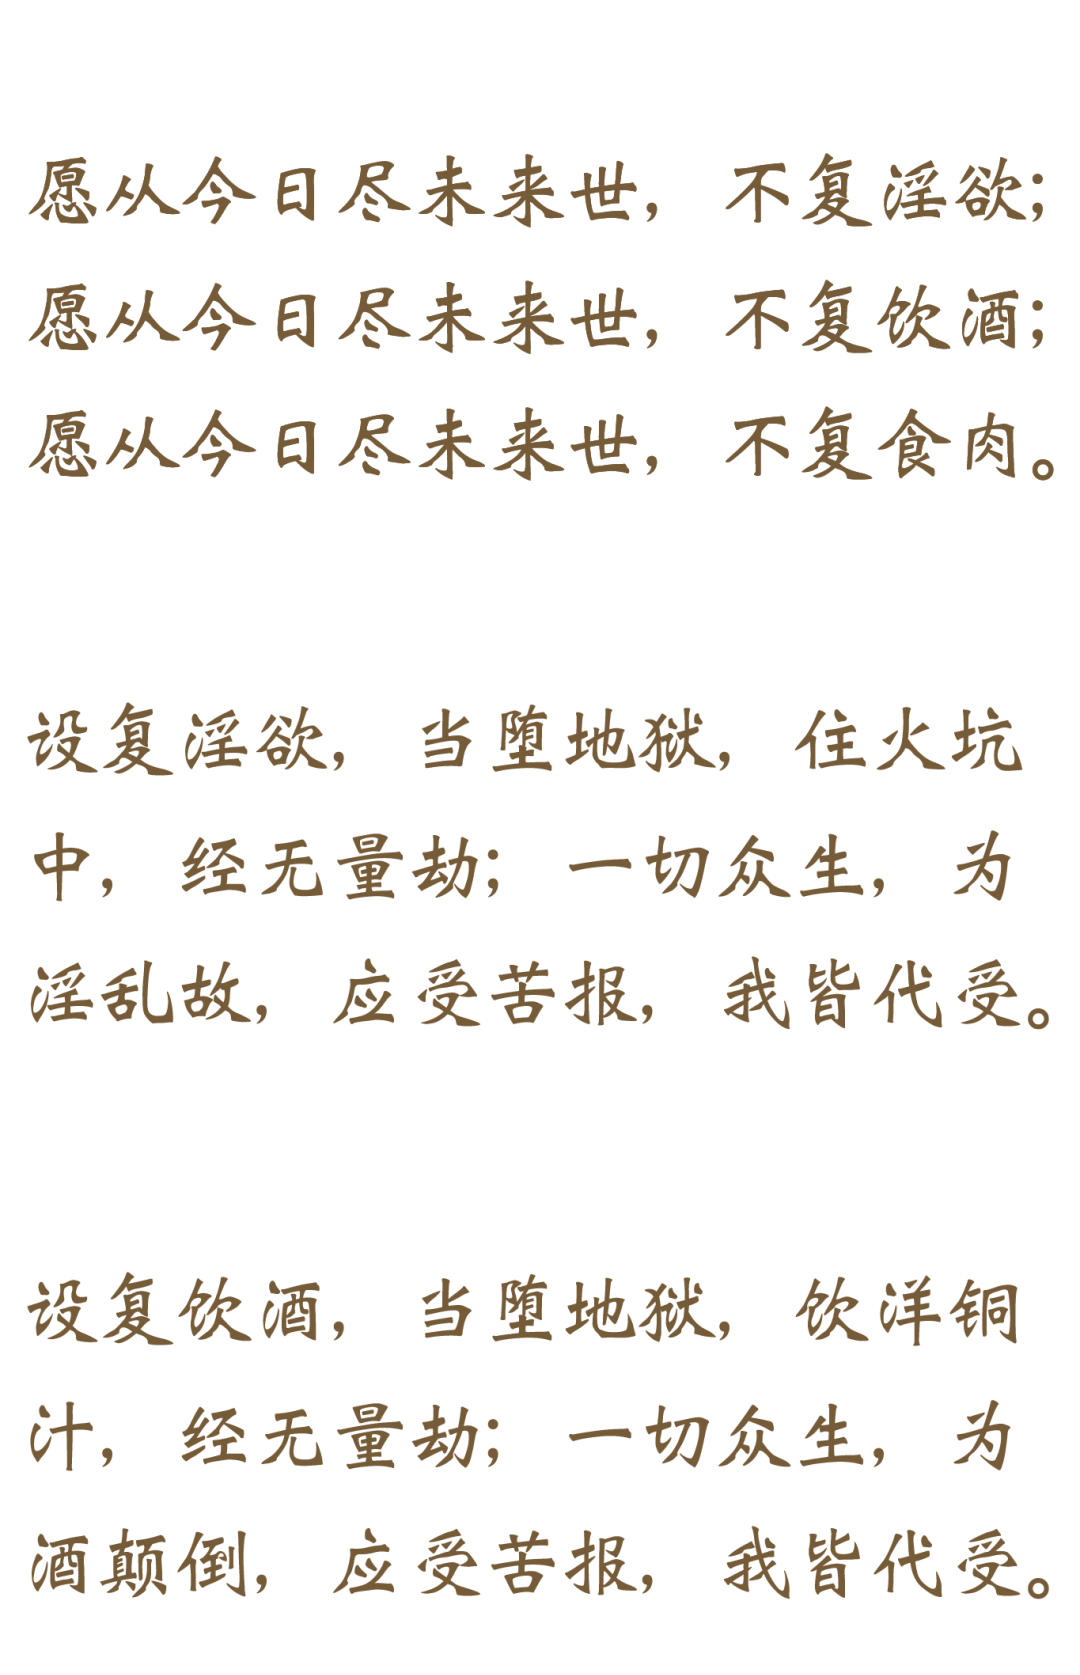 愿从今日尽未来世，不复淫欲；
愿从今日尽未来世，不复饮酒；
愿从今日尽未来世，不复食肉。
设复淫欲，当堕地狱，住火坑
中，经无量劫；一切众生，为
淫乱故，应受苦报，我皆代受。
设复饮酒，当堕地狱，饮洋铜
汁，经无量劫；一切众生，为
酒颠倒，应受苦报，我皆代受。